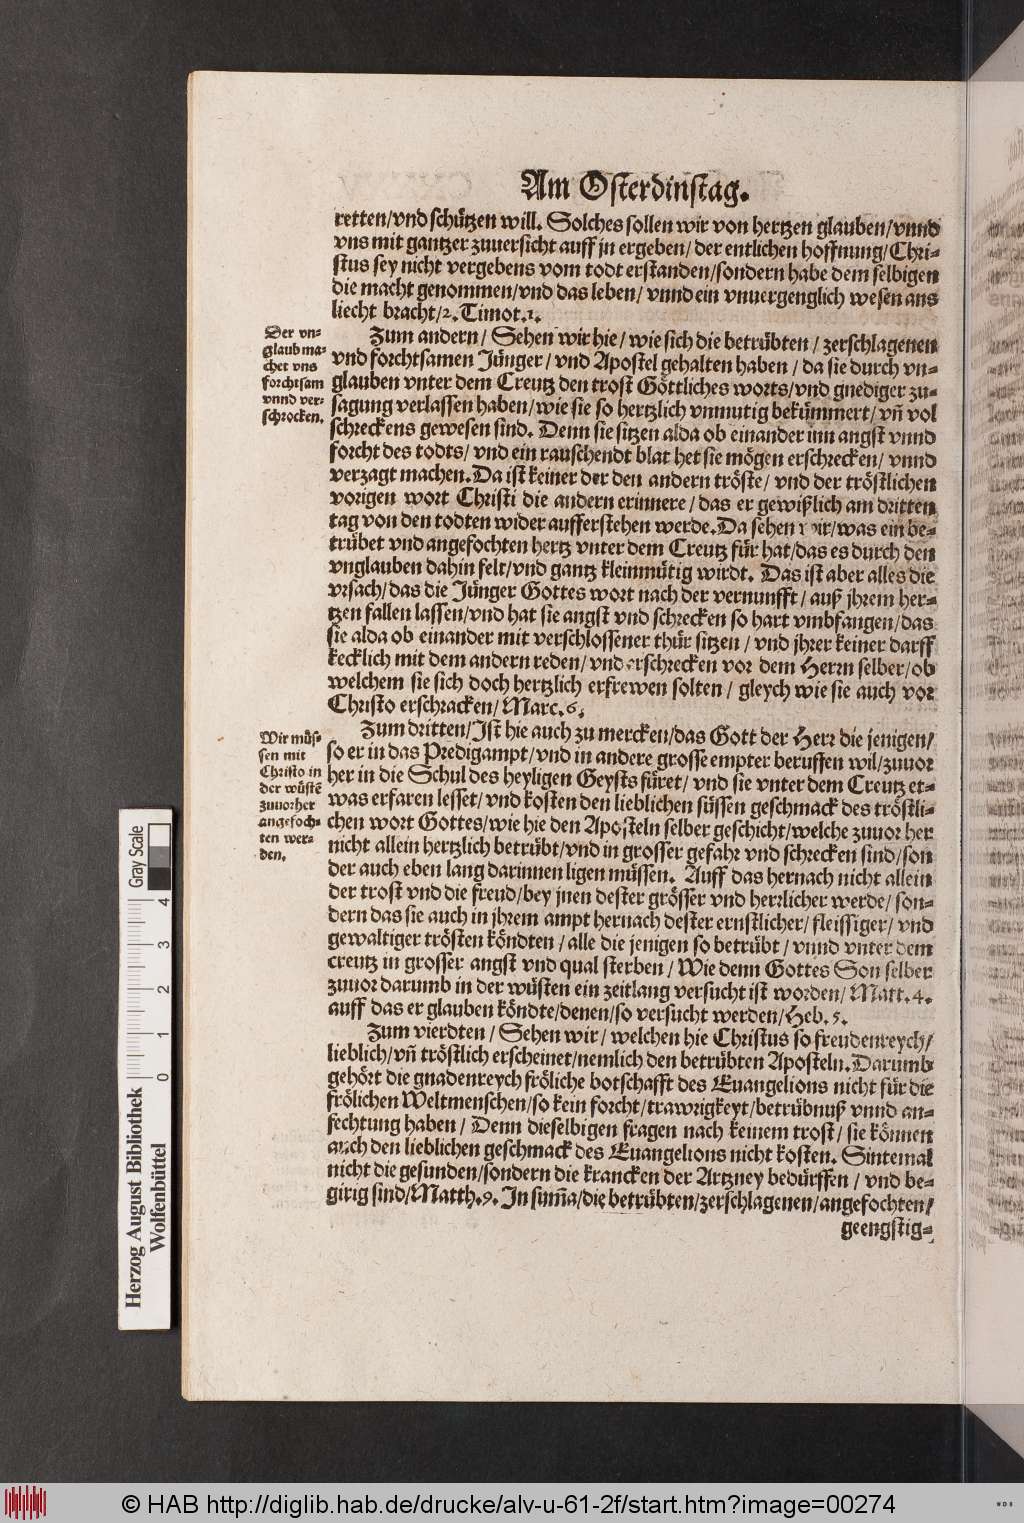 Am Osterdinstag.
retten/vnd schützen will. Solches sollen wir von hertzen glauben/vnnd
vns mit gantzer zuuersicht auff jn ergeben/der entlichen hoffnung/Chri-
stus sey nicht vergebens vom todt erstanden/sondern habe dem selbigen
die macht genommen/vnd das leben/vnnd ein vnuergenglich wesen ans
liecht bracht/2. Timot.1.
Der vn-
glaub ma-
chet vns
forchtsam
vnnd ver-
schrocken.
Zum andern/Sehen wir hie/wie sich die betrübten/zerschlagenen
vnd forchtsamen Jünger/vnd Apostel gehalten haben/da sie durch vn-
glauben vnter dem Creutz den trost Göttliches worts/vnd gnediger zu-
sagung verlassen haben/wie sie so hertzlich vnmutig bekümmert/vñ vol
schreckens gewesen sind. Denn sie sitzen alda ob einander inn angst vnnd
forcht des todts/vnd ein rauschendt blat het sie mögen erschrecken/vnnd
verzagt machen. Da ist keiner der den andern tröste/vnd der tröstlichen
vorigen wort Christi die andern erinnere/das er gewißlich am dritten
tag von den todten wider aufferstehen werde. Da sehen wir/was ein be-
trübet vnd angefochten hertz vnter dem Creutz für hat/das es durch den
vnglauben dahin felt/vnd gantz kleinmütig wirdt. Das ist aber alles die
vrsach/das die Jünger Gottes wort nach der vernunfft/auß jhrem her-
tzen fallen lassen/vnd hat sie angst vnd schrecken so hart vmbfangen/das
sie alda ob einander mit verschlossener thür sitzen/vnd jhrer keiner darff
kecklich mit dem andern reden/vnd erschrecken vor dem Herrn selber/ob
welchem sie sich doch hertzlich erfrewen solten/gleych wie sie auch vor
Christo erschracken/Marc.6.
Wir müs-
sen mit
Christo in
der wüstē
zuuorher
angefoch-
ten wer-
den.
Zum dritten/Jst hie auch zu mercken/das Gott der Herr die jenigen/
so er in das Predigampt/vnd in andere grosse empter beruffen wil/zuuor
her in die Schul des heyligen Geysts füret/vnd sie vnter dem Creutz et-
was erfaren lesset/vnd kosten den lieblichen süssen geschmack des tröstli-
chen wort Gottes/wie hie den Aposteln selber geschicht/welche zuuor her
nicht allein hertzlich betrübt/vnd in grosser gefahr vnd schrecken sind/son
der auch eben lang darinnen ligen müssen. Auff das hernach nicht allein
der trost vnd die freud/bey jnen dester grösser vnd herrlicher werde/son-
dern das sie auch in jhrem ampt hernach dester ernstlicher/fleissiger/vnd
gewaltiger trösten köndten/alle die jenigen so betrübt/vnnd vnter dem
creutz in grosser angst vnd qual sterben/Wie denn Gottes Son selber
zuuor darumb in der wüsten ein zeitlang versucht ist worden/Matt.4.
auff das er glauben köndte/denen/so versucht werden/Heb.5.
Zum vierdten/Sehen wir/welchen hie Christus so freudenreych/
lieblich/vñ tröstlich erscheinet/nemlich den betrübten Aposteln. Darumb
gehört die gnadenreych fröliche botschafft des Euangelions nicht für die
frölichen Weltmenschen/so kein forcht/trawrigkeyt/betrübnuß vnnd an-
fechtung haben/Denn dieselbigen fragen nach keinem trost/sie können
auch den lieblichen geschmack des Euangelions nicht kosten. Sintemal
nicht die gesunden/sondern die krancken der Artzney bedürffen/vnd be-
girig sind/Matth.9. Jn sum̃a/die betrübten/zerschlagenen/angefochten/
geengstig-
Herzog August Bibliothek
Wolfenbüttel
0 1 2 3 4
Gray Scale
© HAB http://diglib.hab.de/drucke/alv-u-61-2f/start.htm?image=00274
WDB